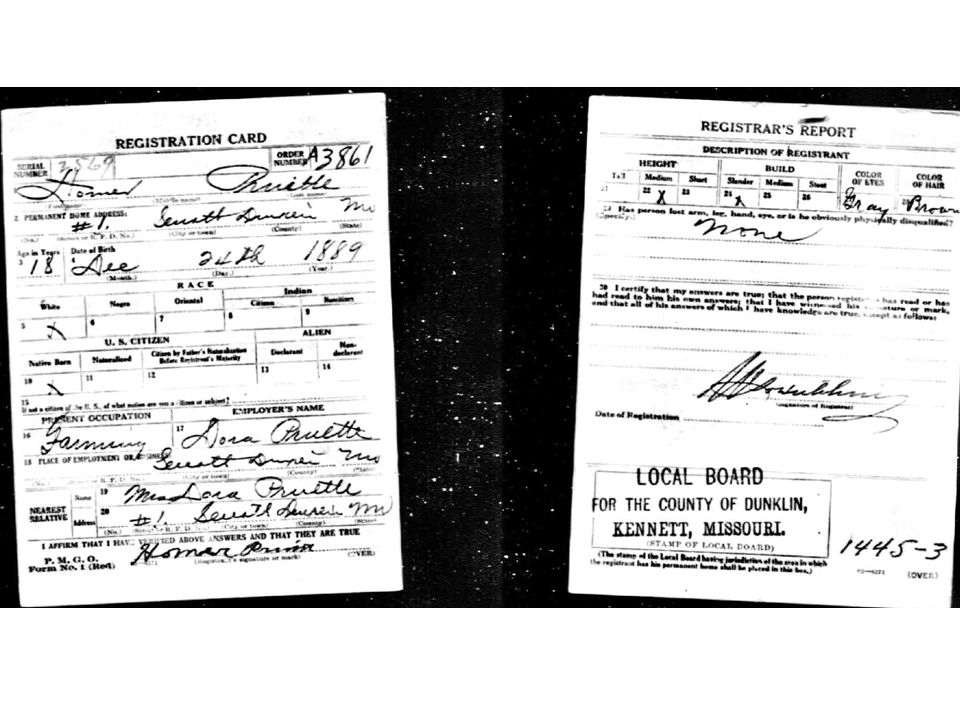 REGISTRATION CARD
SERIAL NUMBER 2569 ORDER NUMBER A3861
1 Homer Pruette
2 PERMANENT HOME ADDRESS:
#1. Senath Dunklin Mo
(No.) (Street or R. F. D. No.) (City or town) (County) (State)
Age in Years Date of Birth
3 18 4 Dec 24th 1889
(Month.) (Day.) (Year.)
RACE
White Negro Oriental Indian
Citizen Noncitizen
5 X 6 7 8 9
U. S. CITIZEN ALIEN
Native Born Naturalized Citizen by Father's Naturalization Before Registrant's Majority Declarant Non-declarant
10 X 11 12 13 14
15
If not a citizen of the U. S., of what nation are you a citizen or subject?
PRESENT OCCUPATION EMPLOYER'S NAME
16 Farming 17 Dora Pruette
18 PLACE OF EMPLOYMENT OR BUSINESS:
Senath Dunklin Mo
(No.) (City or town) (County) (State)
NEAREST RELATIVE Name 19 Mrs Dora Pruette
Address 20 #1. Senath Dunklin Mo
(No.) (Street or R. F. D. No.) (City or town) (County) (State)
I AFFIRM THAT I HAVE VERIFIED ABOVE ANSWERS AND THAT THEY ARE TRUE
P. M. G. O.
Form No. 1 (Red) Homer
(Registrant's signature or mark) (OVER)
REGISTRAR'S REPORT
DESCRIPTION OF REGISTRANT
HEIGHT BUILD COLOR OF EYES COLOR OF HAIR
Tall Medium Short Slender Medium Stout
21 22 X 23 24 X 25 26 Gray 28 Brown
29 Has person lost arm, leg, hand, eye, or is he obviously physically disqualified?
(Specify.) None
30 I certify that my answers are true; that the person registered has read or has
had read to him his own answers; that I have witnessed his signature or mark,
and that all of his answers of which I have knowledge are true, except as follows:
(Signature of Registrar)
Date of Registration
LOCAL BOARD
FOR THE COUNTY OF DUNKLIN,
KENNETT, MISSOURI.
(STAMP OF LOCAL BOARD)
(The stamp of the Local Board having jurisdiction of the area in which
the registrant has his permanent home shall be placed in this box.)
1445-3
(OVER)